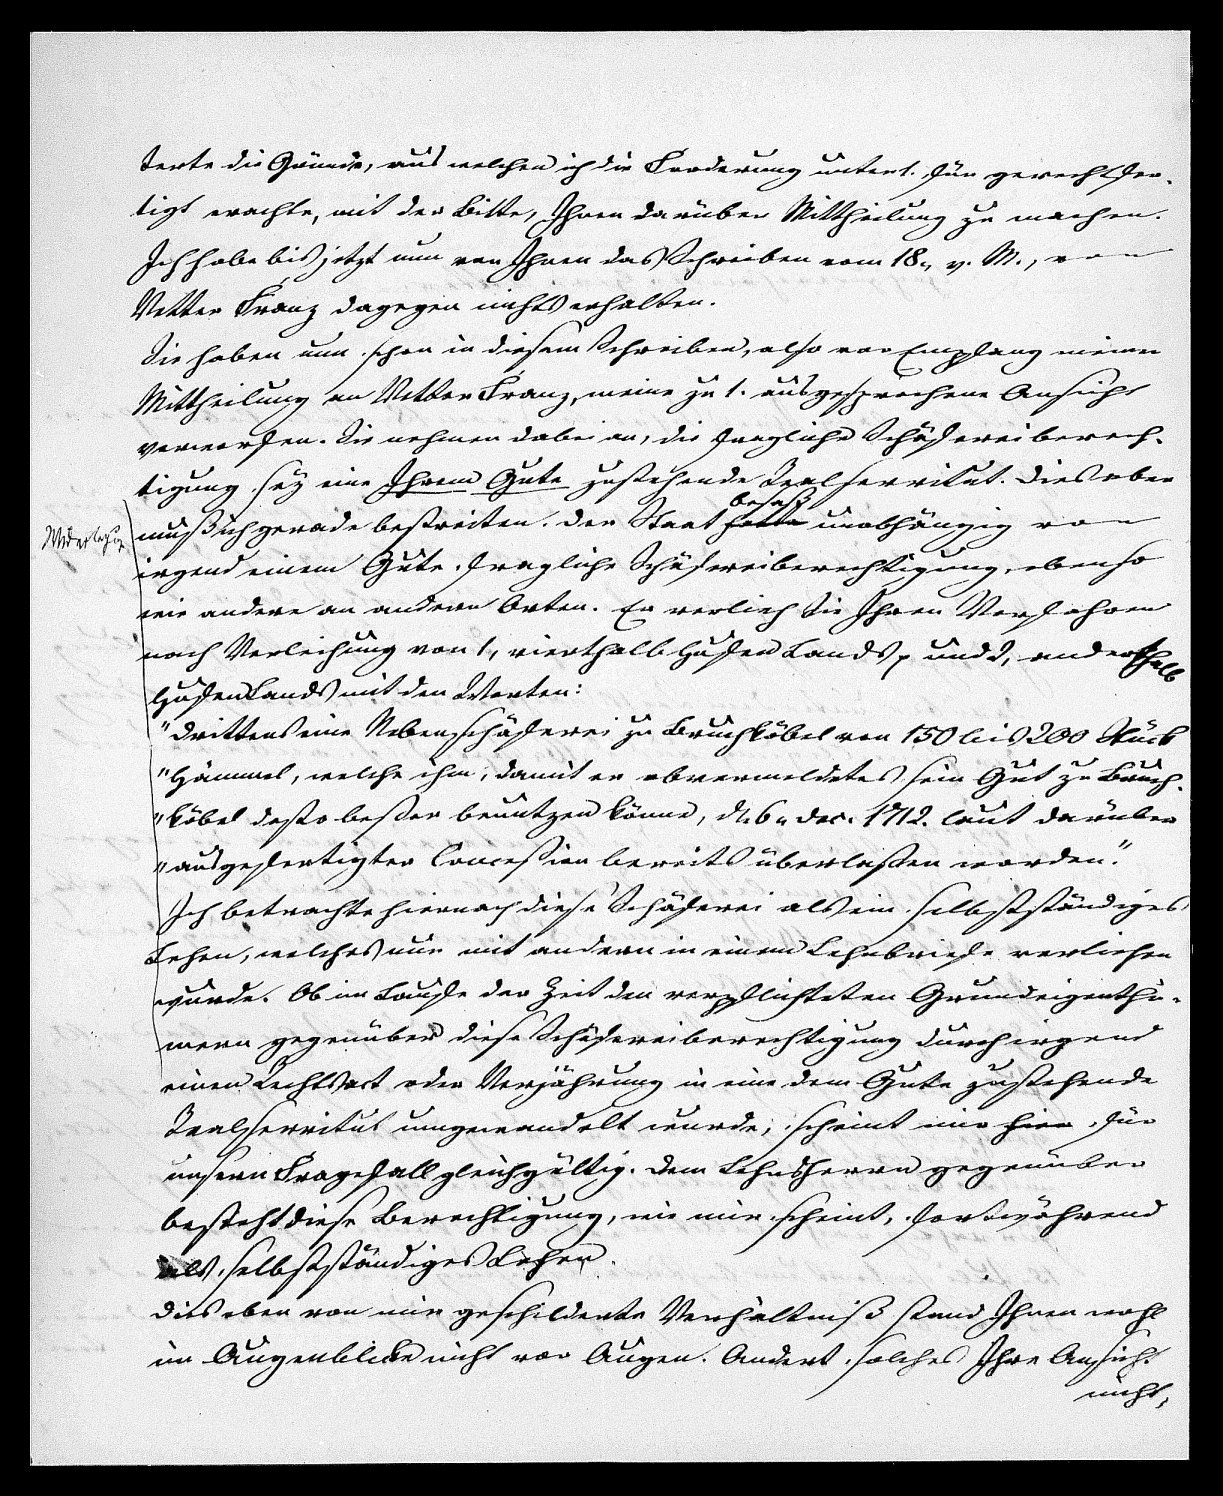 terte die Gründe, aus welchen ich die Forderung unter 1. für gerechtfer-
tigt erachte, mit der Bitte, Ihnen darüber Mittheilung zu machen.
Ich habe bis jetzt nun von Ihnen das Schreiben vom 18., v. M., von
Vetter Franz dagegen nichts erhalten.
Sie haben nun schon in diesem Schreiben, also vor Empfang meiner
Mittheilung an Vetter Franz, meine zu 1. ausgesprochene Ansicht
verworfen. Sie nehmen dabei an, die fragliche Schäfereiberech-
tigung sey eine Ihrem Gute zustehende Realservitut. Dies aber
besaß
Widerlegung
muß ich gerade bestreiten. Der Staat hatte unabhängig von
irgend einem Gute fragliche Schäfereiberechtigung, ebenso
wie andere an andern Orten. Er verlieh sie Ihren Vorfahren
nach Verleihung von 1, vierthalb Hufen Lands, und 2, anderthalb
Hufen Lands mit den Worten:
"drittens eine Nebenschäferei zu Bruchköbel von 150 bis 200 Stück
"Hämmel, welche ihm, damit er obvermeldetes sein Gut zu Bruch-
"köbel desto beßer benutzen könne, d. 6. Dec. 1712. laut darüber
"ausgefertigter Conceßion bereits überlaßen worden."
Ich betrachte hiernach diese Schäferei als ein selbstständiges
Lehen, welches nur mit andern in einem Lehnbriefe verliehen
wurde. Ob im Laufe der Zeit den verpflichteten Grundeigenthü-
mern gegenüber diese Schäfereiberechtigung durch irgend
einen Rechtsact oder Verjährung in eine dem Gute zustehende
Realservitut umgewandelt wurde, scheint mir hier für
unsern Fragefall gleichgültig. Dem Lehnsherrn gegenüber
besteht diese Berechtigung, wie mir scheint, fortwährend
als selbstständiges Lehen.
Dies eben von mir geschilderte Verhältniß stand Ihnen wohl
im Augenblicke nicht vor Augen. Ändert solches Ihre Ansicht
nicht,